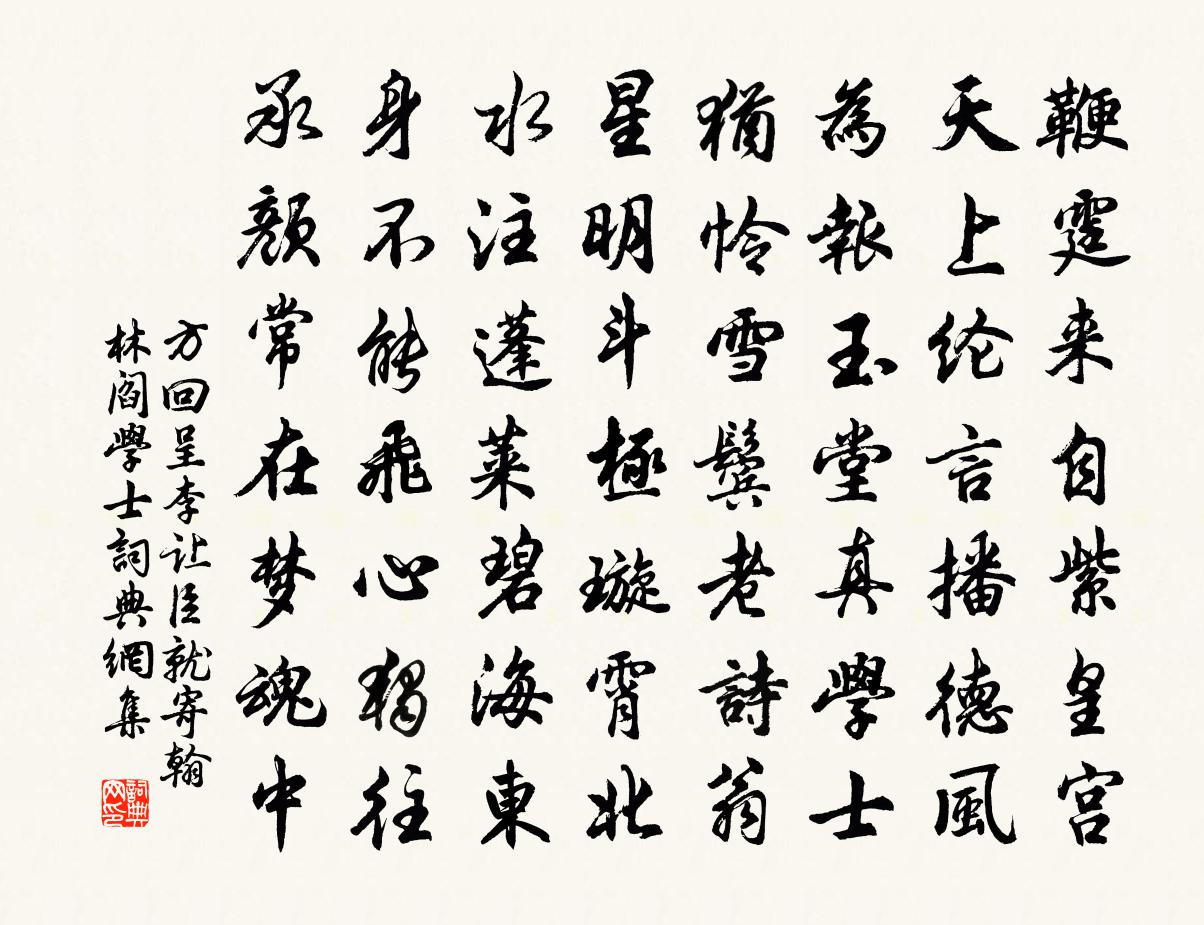 鞭霆来自紫皇宫
天上纶言播德風
為報玉堂真學士
猶怜雪鬓老詩翁
星明斗極璇霄北
水注蓬萊碧海東
身不能飛心獨往
承顔常在梦魂中
方回呈李让臣就寄翰
林阎學士詞典網集
詞典
网印